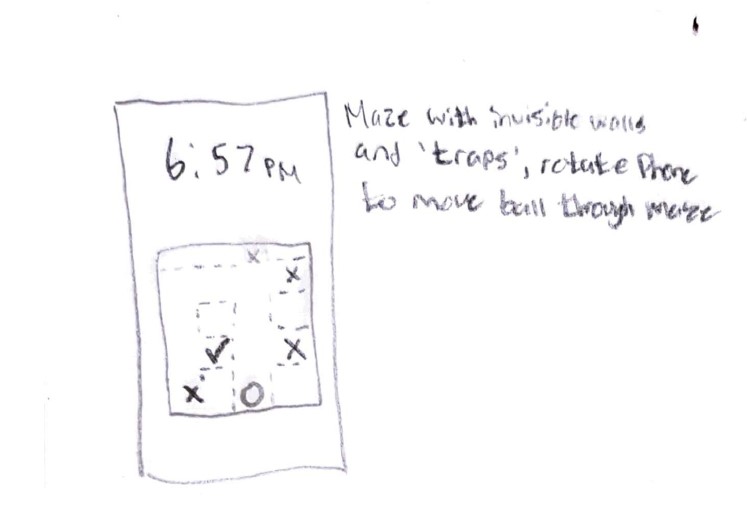 Maze with invisible walls
and 'traps', rotate Phone
to move ball through maze
6:57 PM
X
X
✓ X
X O